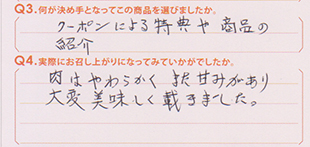 Q3.何が決め手となってこの商品を選びましたか。
クーポンによる特典や商品の
紹介
Q4.実際にお召し上がりになってみていかがでしたか。
肉はやわらかく また甘みがあり
大変美味しく載きました。